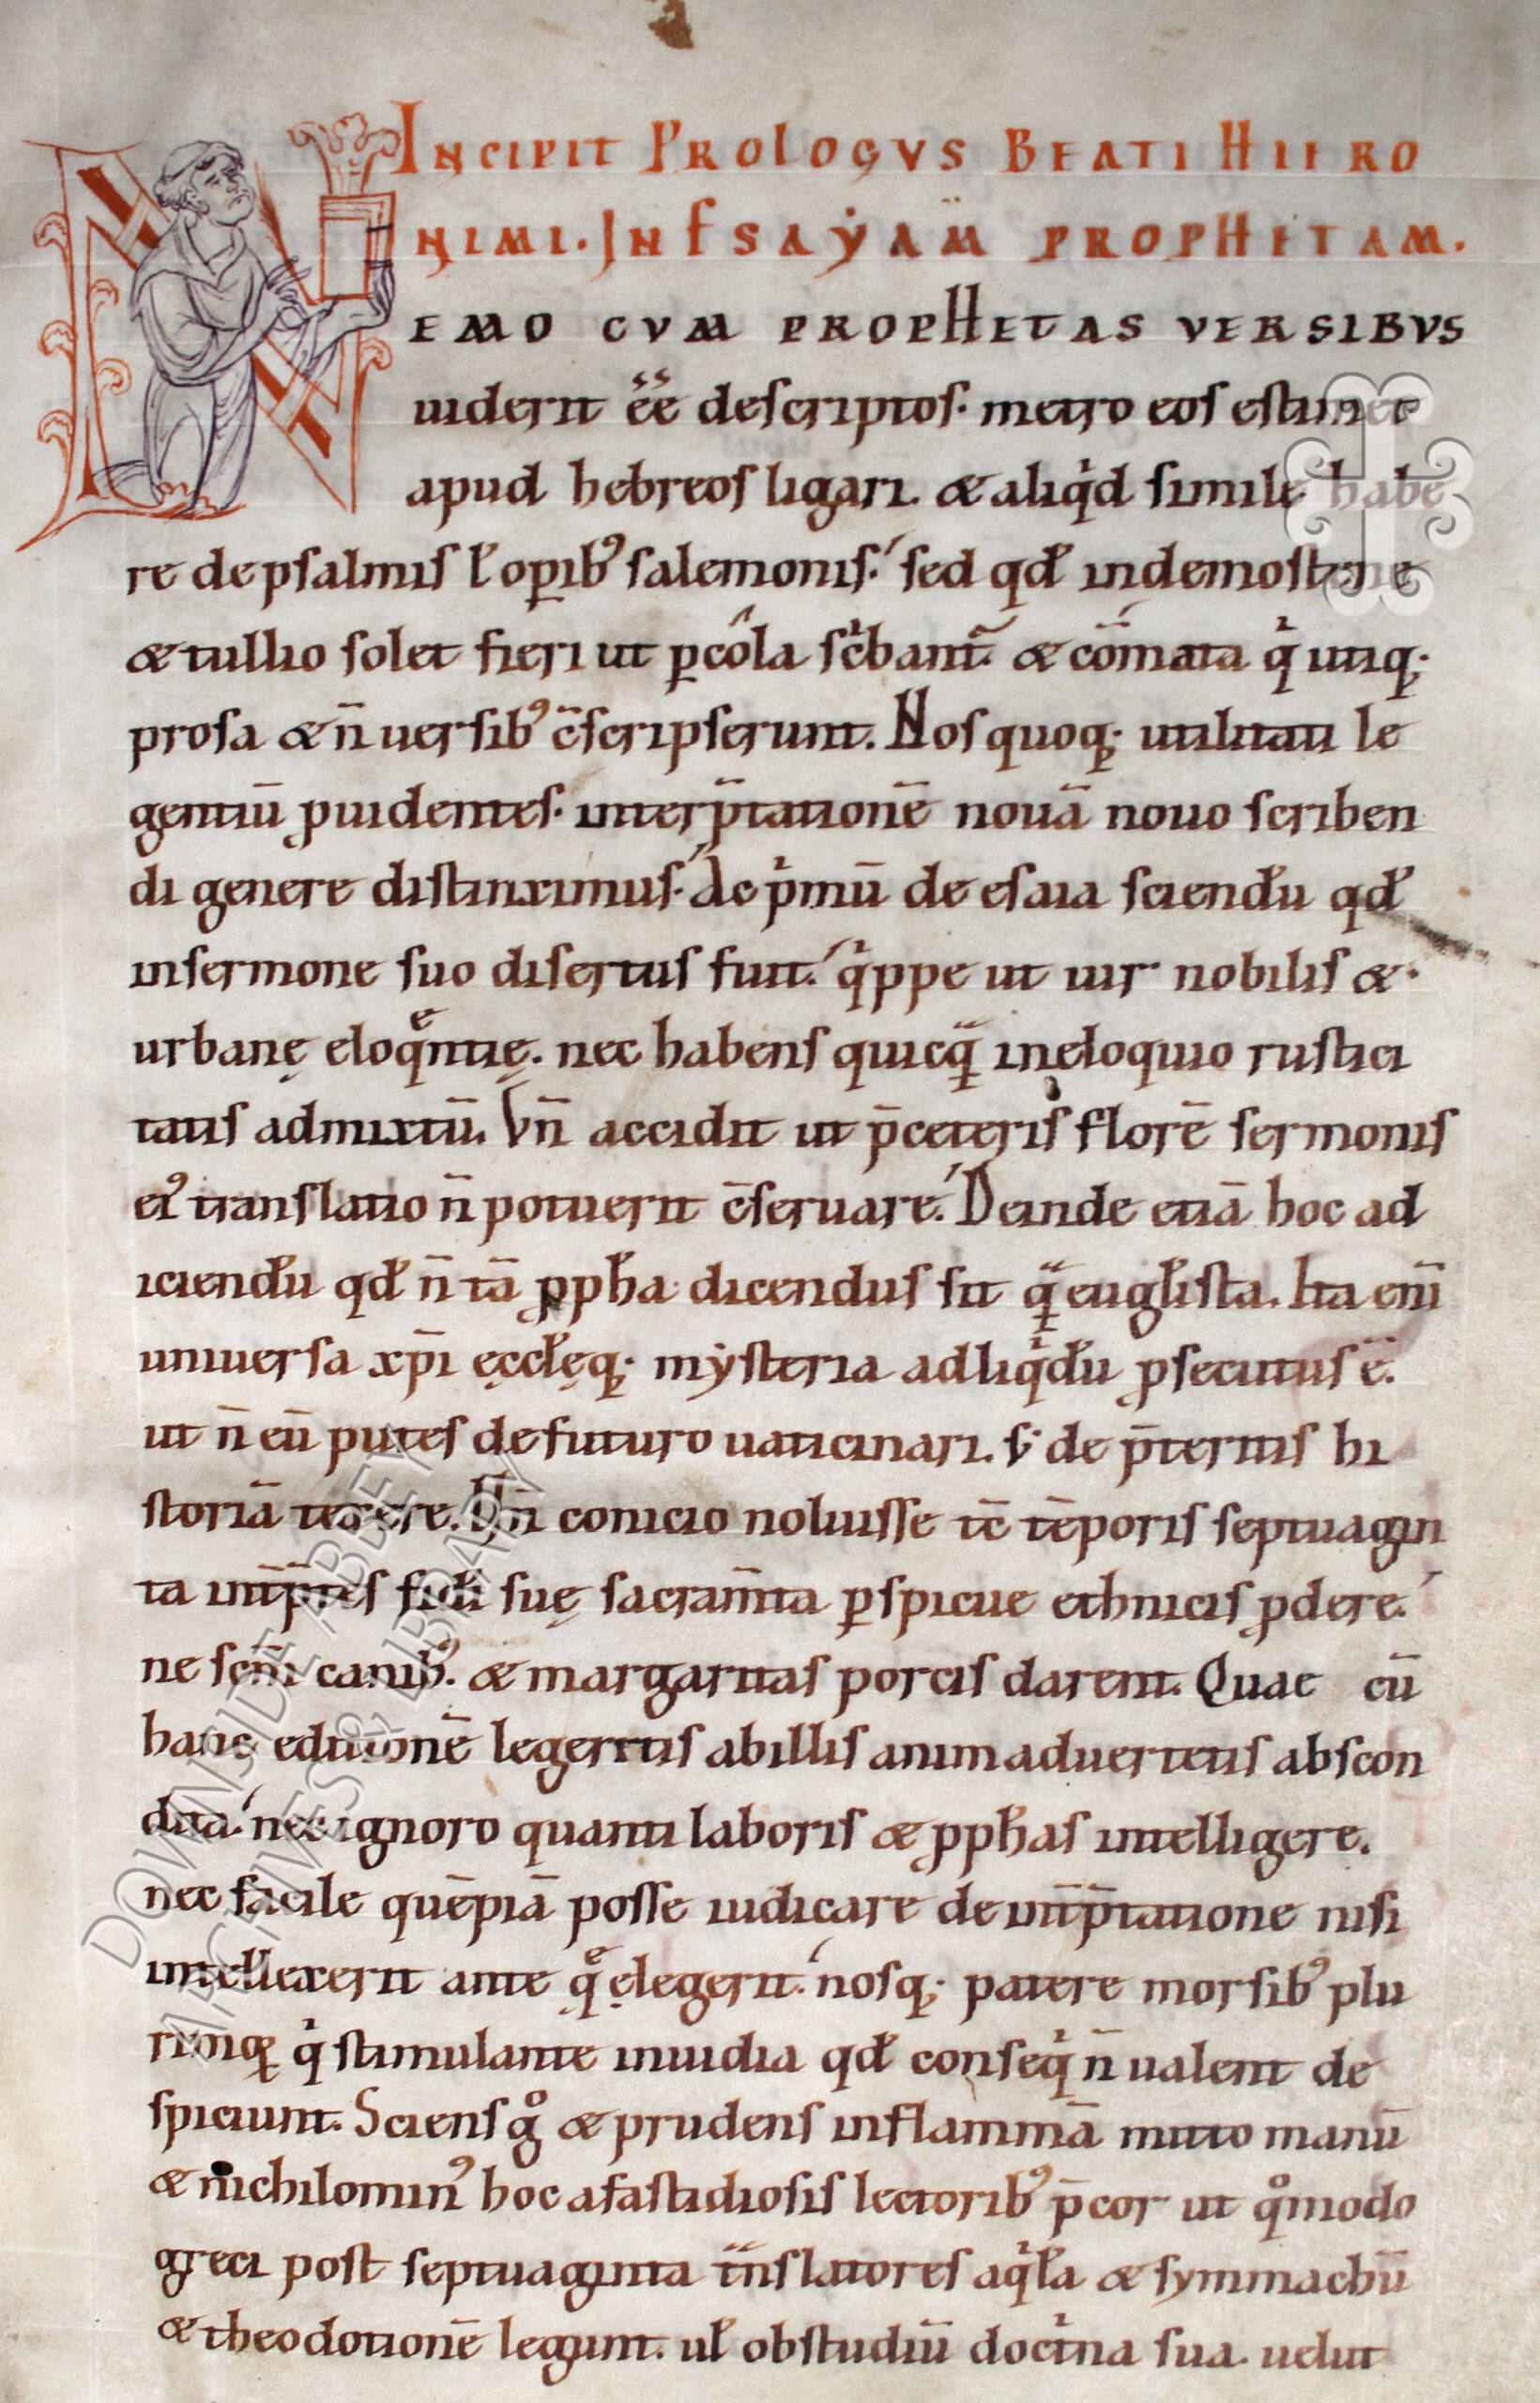 INCIPIT PROLOGVS BEATI HIERO
NIMI. IN ESAẎAM PROPHETAM.
NEMO CVM PROPHETAS VERSIBVS
uiderit ẽẽ descriptos. metro eos estimet
apud hebreos ligari. & aliqͥd simile habe
re de psalmis ł oꝑibꝰ salemonis. sed qđ in demostene
& tullio solet fieri ut ꝑ cola scͥbant᷑. & cõmata qͥ utiq;
prosa & n̄ uersibꝰ c̄scripserunt. Nos quoq; utilitati le
gentiū ꝓuidentes. interp̄tationē nouā nouo scriben
di genere distinximus. Ac pͥmū de esaia sciendū qđ
in sermone suo disertus fuit. qͥppe ut uir nobilis &
urbanę eloqͤntię. nec habens quicqᷓ in eloquio rustici
tatis admixtū. Vn̄ accidit ut p̄ ceteris florē sermonis
eiꝰ translatio n̄ potuerit c̄seruare. Deinde etiā hoc ad
iciendū qđ n̄ tā ꝓpħa dicendus sit qᷓ eugl̄ista. Ita eni̅
uniuersa xp̄i ęccłęq; mẏsteria ad liqͥdū ꝓsecutus ē.
ut n̄ eū putes de futuro uaticinari. s; de p̄teritis hi
storiā texere. Vn̄ conicio noluisse tc̄ tēporis septuagin
ta int̄p̄tes fidi suę sacram̄ta ꝑspicue ethnicis ꝓdere.
ne scm̄ canibꝰ. & margaritas porcis darent. Quae cū
hanc editionē legeritis ab illis animaduertetis abscon
dita. nec ignoro quanti laboris & ꝓpħas intelligere.
nec facile quēpiā posse iudicare de int̄p̄tatione nisi
intellexerit ante qͤ legerit. nosq; patere morsibꝰ plu
rimoꝝ qͥ stimulante inuidia qđ conseqͥ n̄ ualent de
spiciunt. Sciens gͦ & prudens in flammā mitto manū
& nichilominꝰ hoc a fastidiosis lectoribꝰ p̄cor ut qͦmodo
greci post septuaginta tᷓnslatores aqͥła & symmachū
& theodotionē legunt. uł ob studiū doctͥna sua. uelut
DOWNSIDE ABBEY
ARCHIVES & LIBRARY